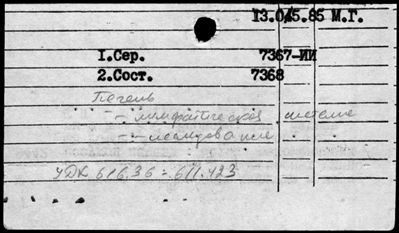 13.05.85 М.Г.
1.Сер. 7367-ИИ
2.Сост. 7368
Печень
- лимфатическая система
- исследование
УДК 616.36 : 611.423